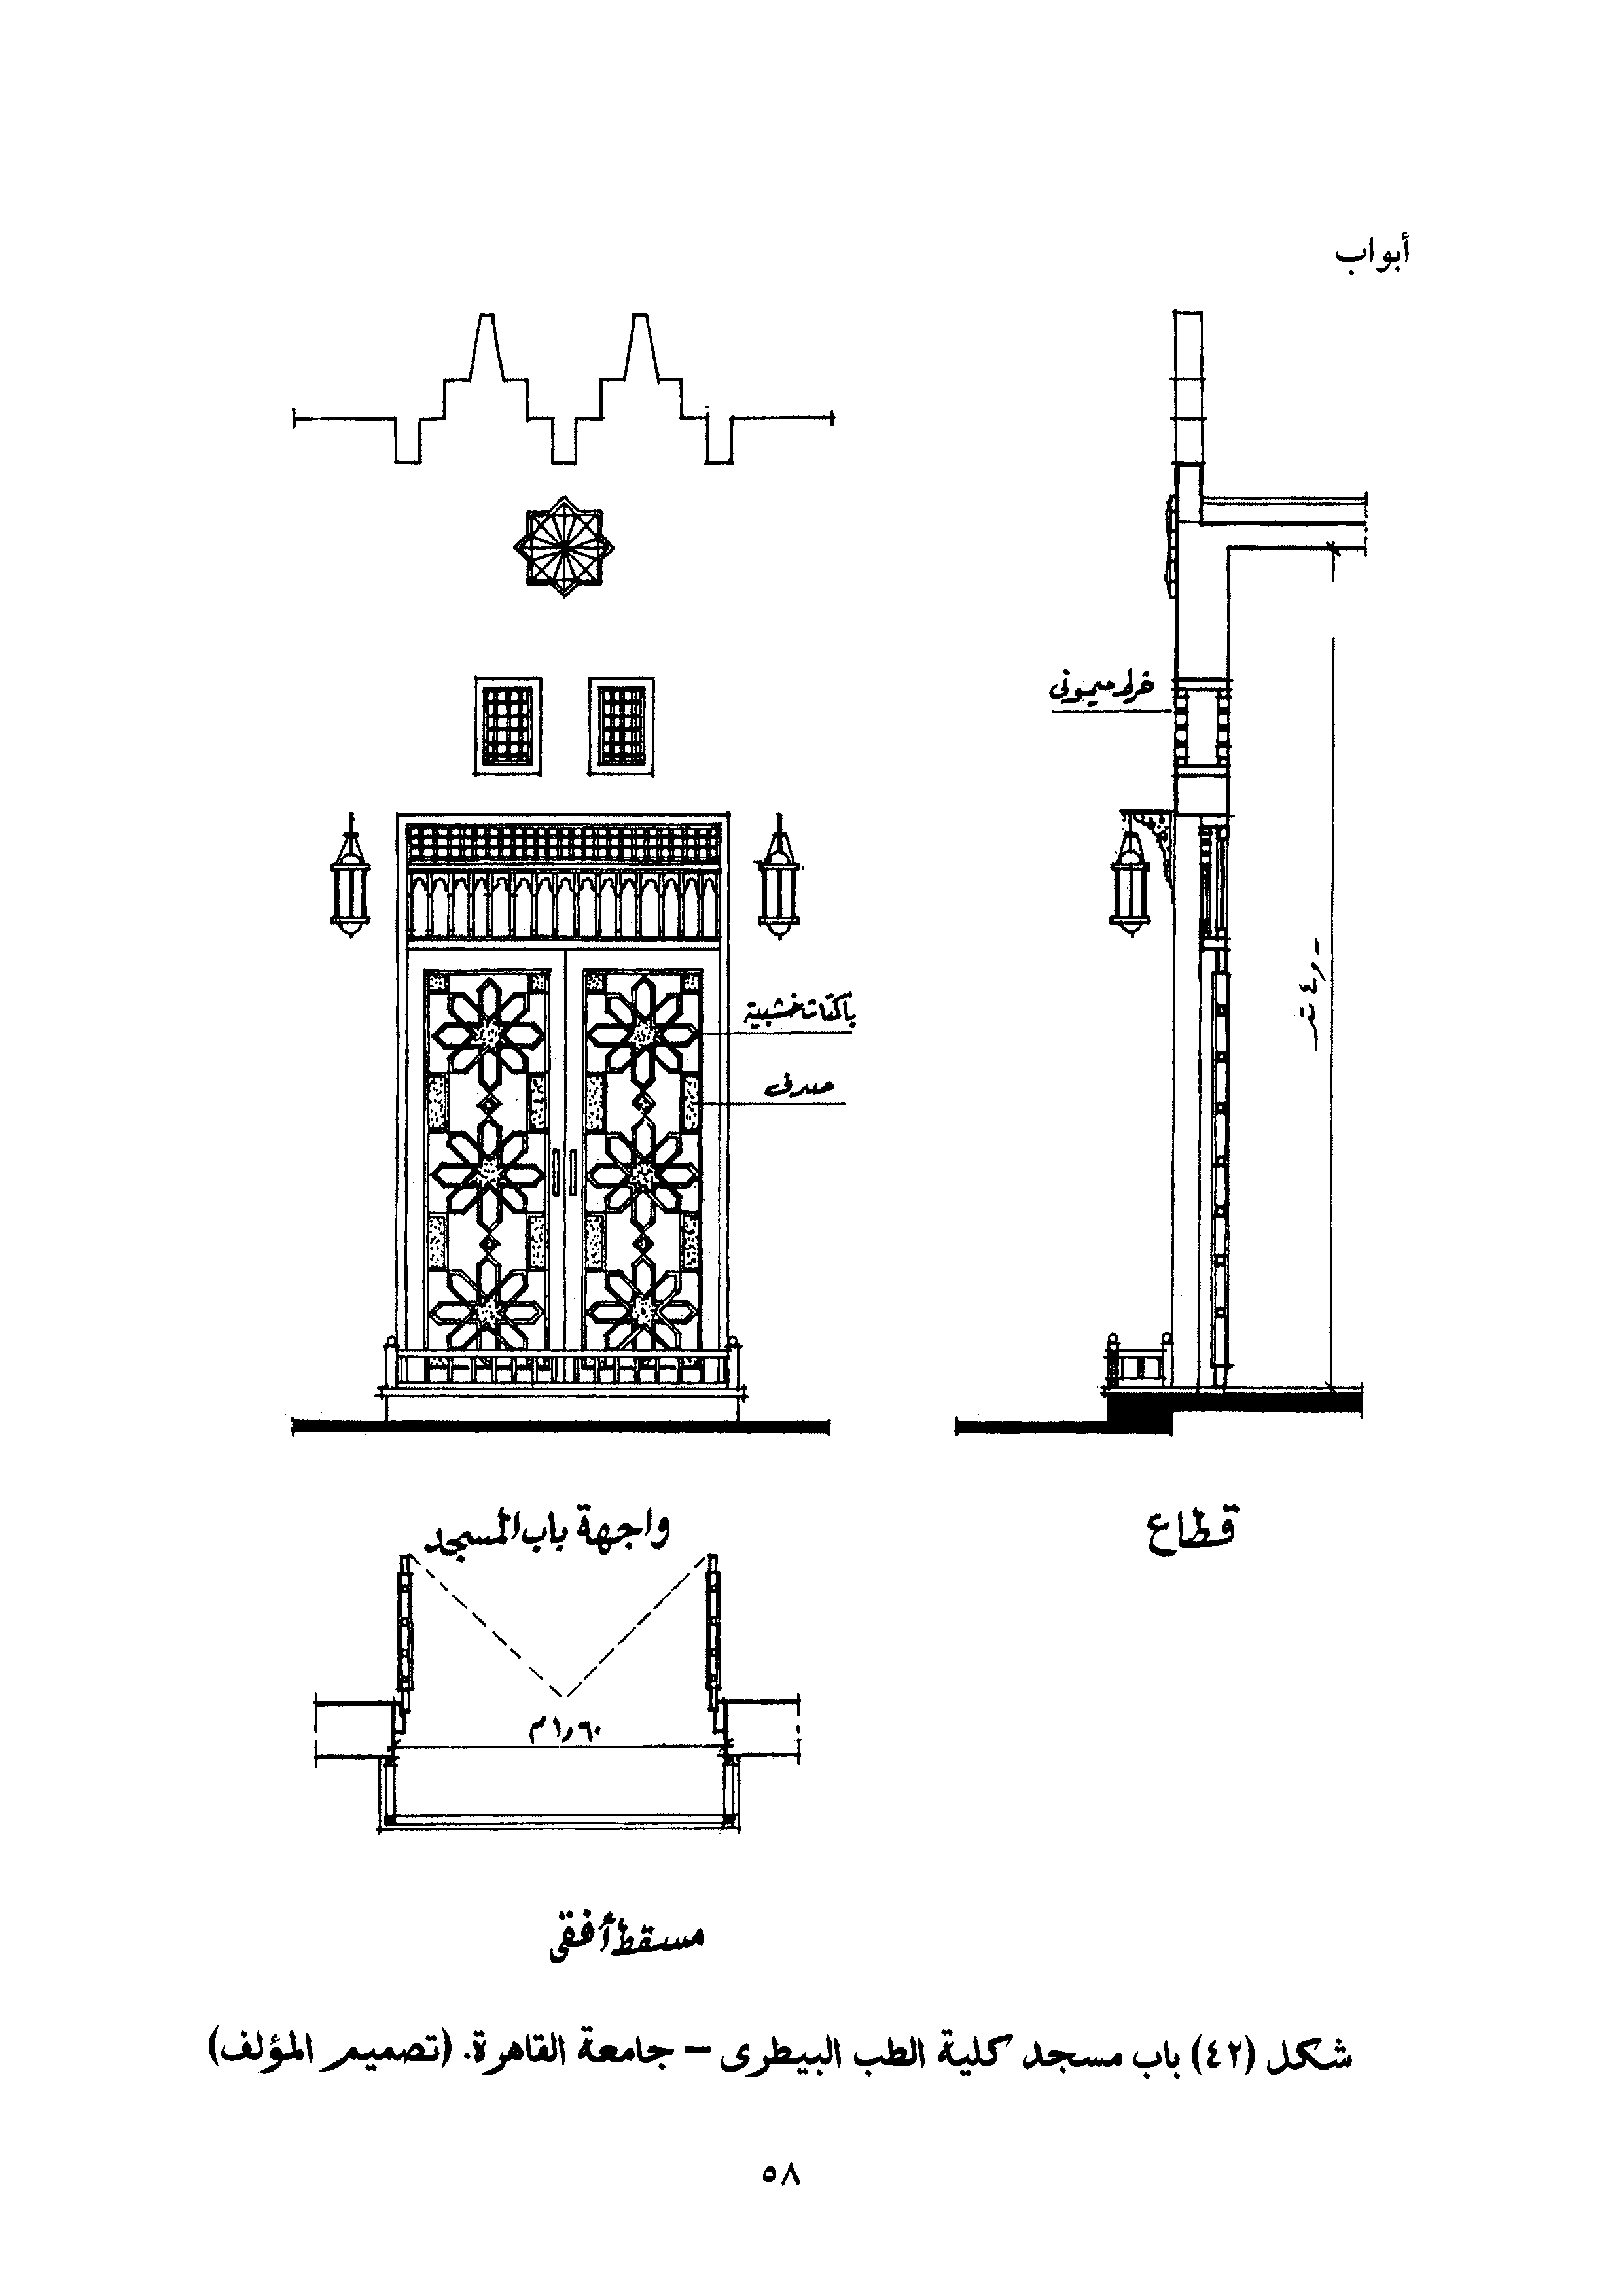 أبواب
خرط ميمونى
باكتات خشبية
صدف
-ر٤ متر
واجهة باب المسجد
قطاع
١٫٦٠م
مسقط أفقى
شكل (٤٢) باب مسجد كلية الطب البيطرى – جامعة القاهرة. (تصميم المؤلف)
٥٨